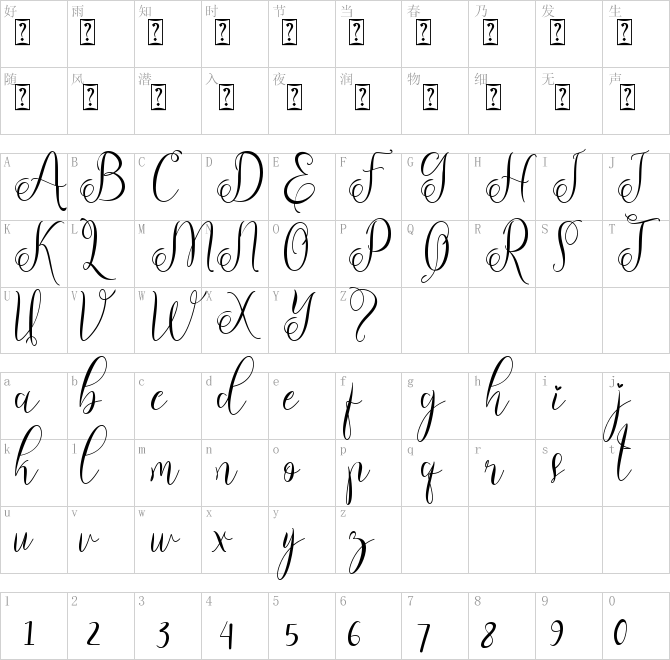 好 雨 知 时 节 当 春 乃 发 生
? ? ? ? ? ? ? ? ? ?
随 风 潜 入 夜 润 物 细 无 声
? ? ? ? ? ? ? ? ? ?
A B C D E F G H I J
A B C D E F G H I J
K L M N O P Q R S T
K L M N O P Q R S T
U V W X Y Z
U V W X Y Z
a b c d e f g h i j
a b c d e f g h i j
k l m n o p q r s t
k l m n o p q r s t
u v w x y z
u v w x y z
1 2 3 4 5 6 7 8 9 0
1 2 3 4 5 6 7 8 9 0